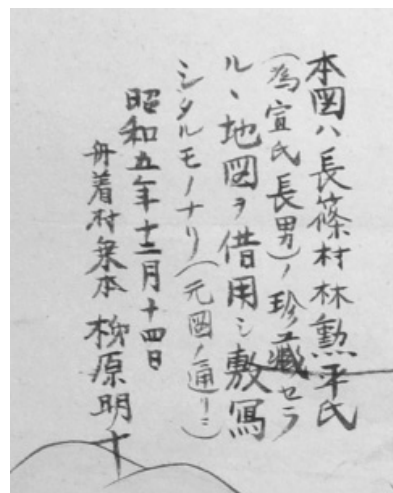 本図ハ長篠村林勲平氏
(為宣氏長男)ノ珍蔵セラ
ルヽ地図ヲ借用シ敷寫
シタルモノナリ(元図ノ通リニ)
昭和五年十二月十四日
舟着村乗本 柳原明十